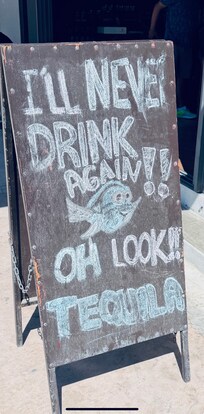 I'LL NEVER
DRINK
AGAIN!!
OH LOOK!!
TEQUILA